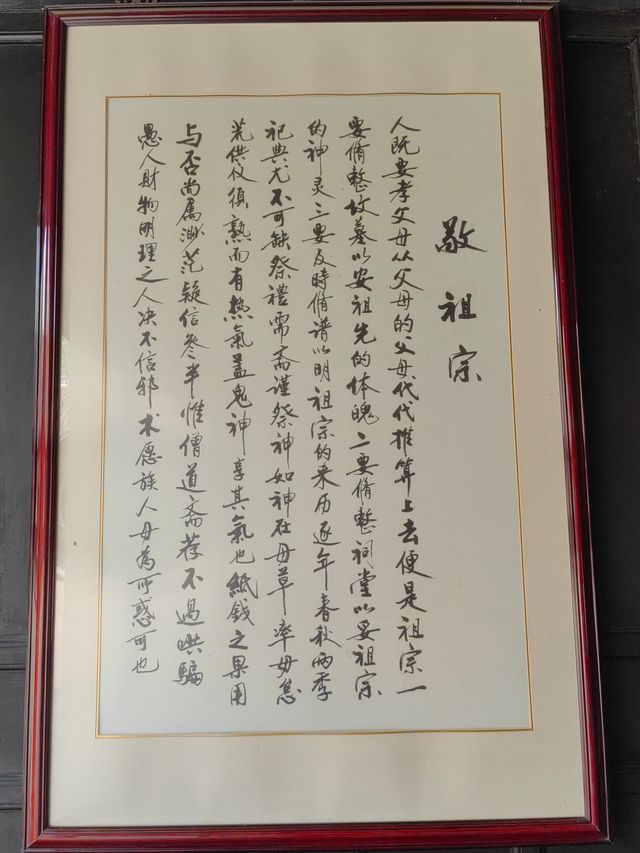 敬祖宗
人既要孝父母从父母的父母代代推算上去便是祖宗一
要脩整坟墓以安祖先的体魄二要脩整祠堂以妥祖宗
的神灵三要及時脩谱以明祖宗的来历逐年春秋两季
祀典尤不可缺祭禮需斋谨祭神如神在毋草率毋怠
荒供仪须熟而有熱氣盖鬼神享其氣也紙錢之果用
与否尚属渺茫疑信叁半惟僧道斋荐不過哄騙
愚人財物明理之人决不信邪术愿族人毋為所惑可也